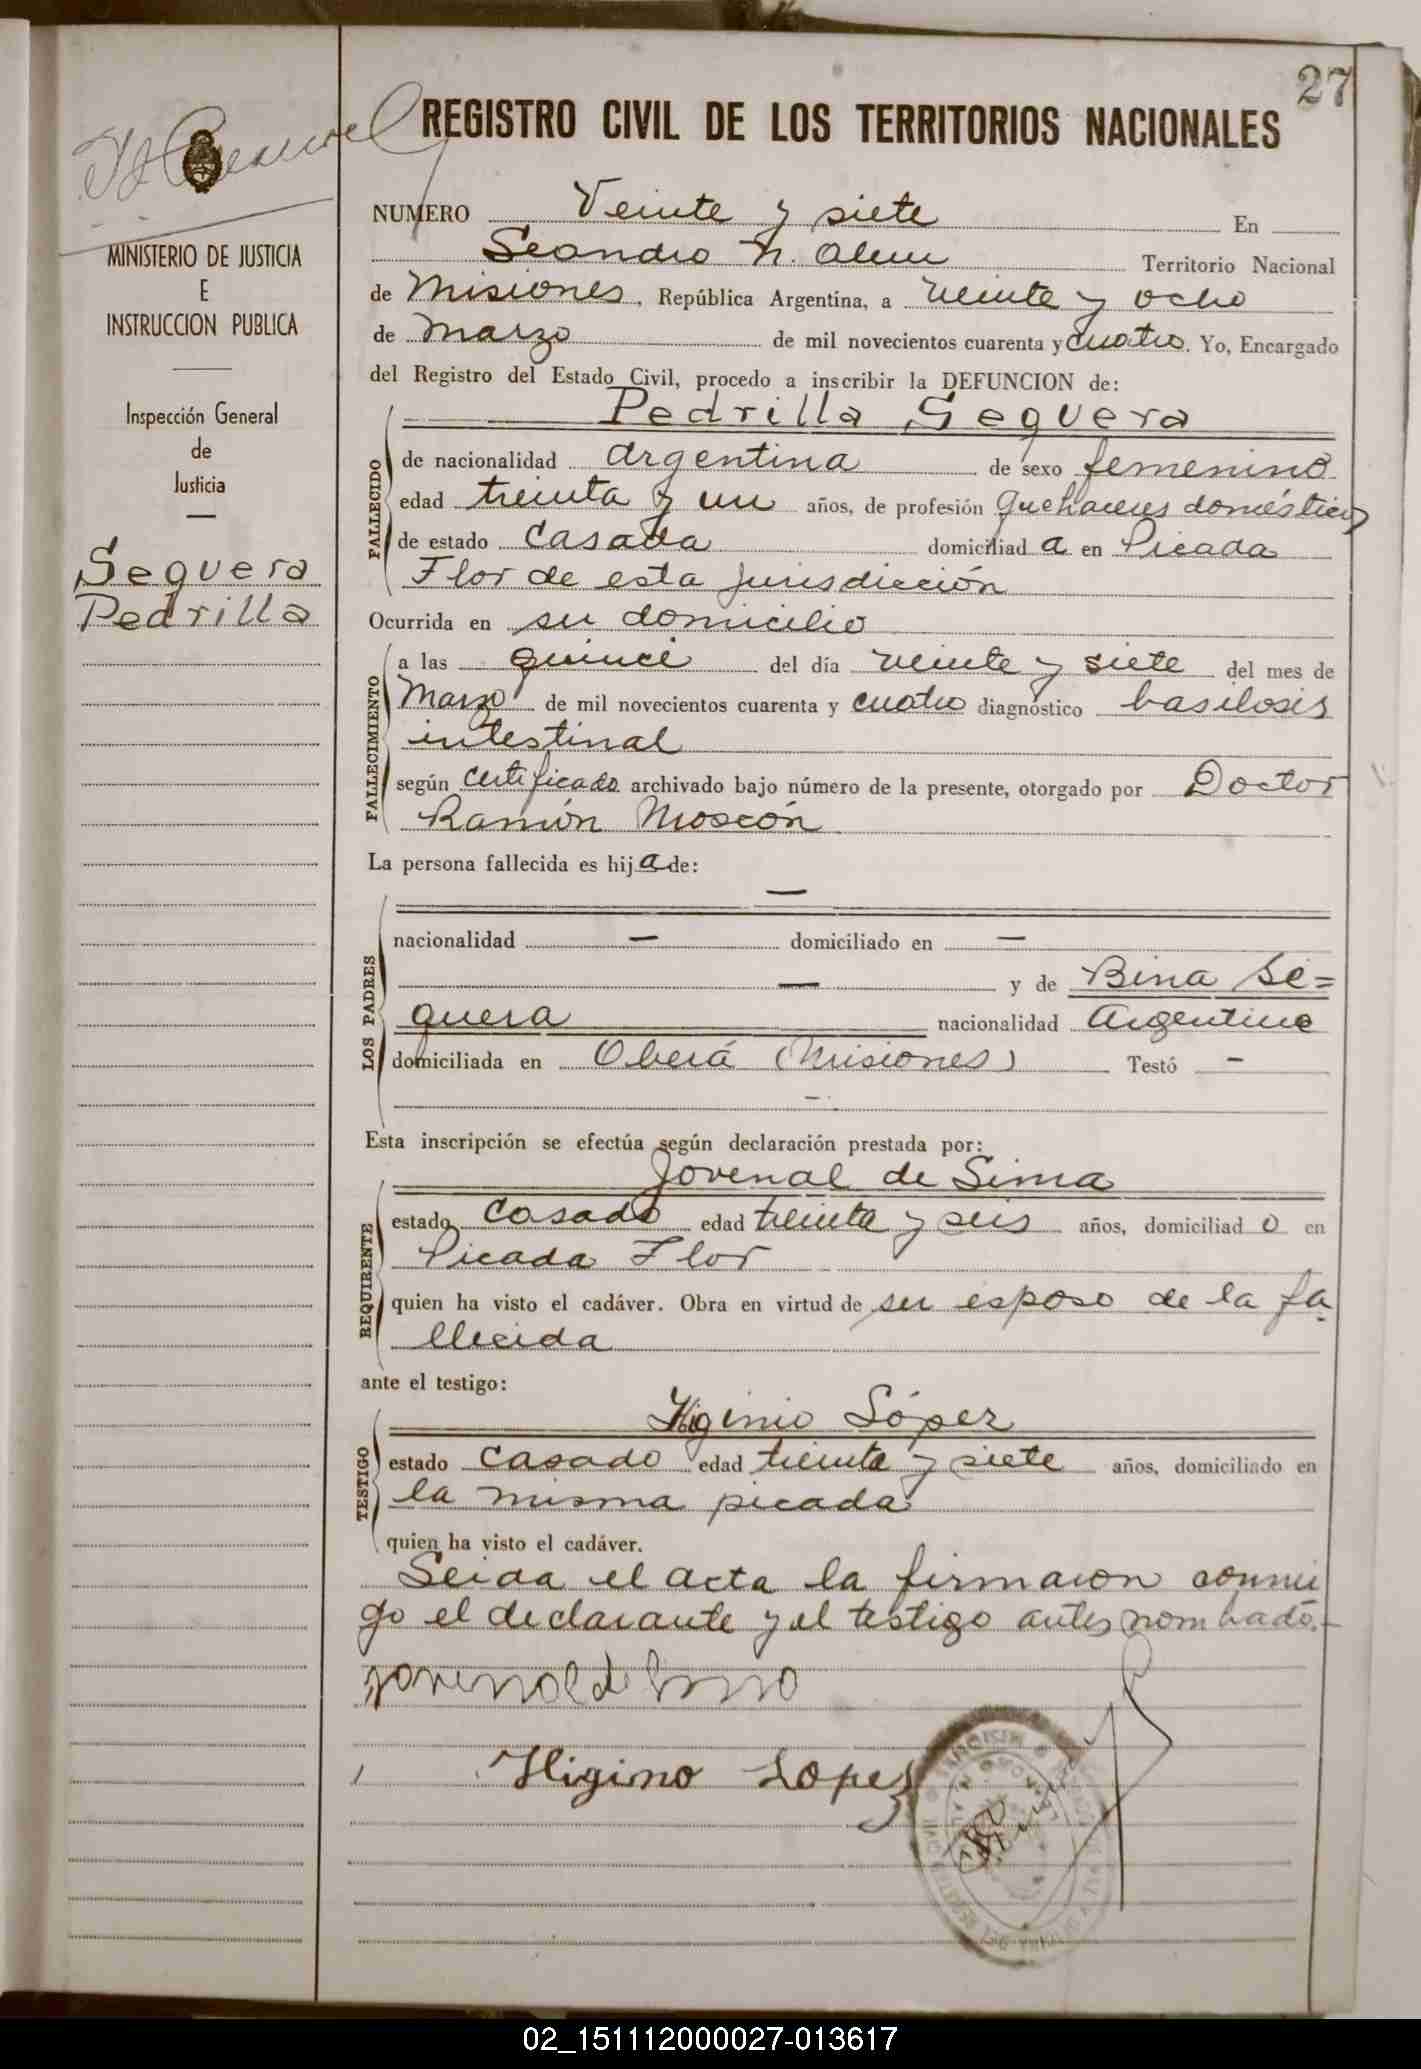 27
REGISTRO CIVIL DE LOS TERRITORIOS NACIONALES
MINISTERIO DE JUSTICIA
E
INSTRUCCION PUBLICA
Inspección General
de
Justicia
Seguera
Pedrilla
NUMERO Veinte y siete En
Leandro N. Alem Territorio Nacional
de Misiones, República Argentina, a veinte y ocho
de Marzo de mil novecientos cuarenta y cuatro. Yo, Encargado
del Registro del Estado Civil, procedo a inscribir la DEFUNCION de:
Pedrilla Seguera
FALLECIDO
de nacionalidad Argentina de sexo femenino
edad treinta y un años, de profesión quehaceres domésticos
de estado Casada domiciliad a en Picada
Flor de esta jurisdicción
Ocurrida en su domicilio
FALLECIMIENTO
a las quince del día veinte y siete del mes de
Marzo de mil novecientos cuarenta y cuatro diagnóstico basilosis
intestinal
según certificado archivado bajo número de la presente, otorgado por Doctor
Ramón Moscón
La persona fallecida es hij a de:
—
LOS PADRES
nacionalidad — domiciliado en —
— y de Bina Se=
guera nacionalidad Argentina
domiciliada en Oberá (Misiones) Testó —
-
Esta inscripción se efectúa según declaración prestada por:
Jovenal de Lima
REQUIRENTE
estado Casado edad treinta y seis años, domiciliad o en
Picada Flor
quien ha visto el cadáver. Obra en virtud de ser esposo de la fa-
llecida
ante el testigo:
Higinio López
TESTIGO
estado Casado edad treinta y siete años, domiciliado en
la misma picada
quien ha visto el cadáver.
Leida el acta la firmaron conmi
go el declarante y el testigo antes nombrado.-
Higino Lopez
02_151112000027-013617